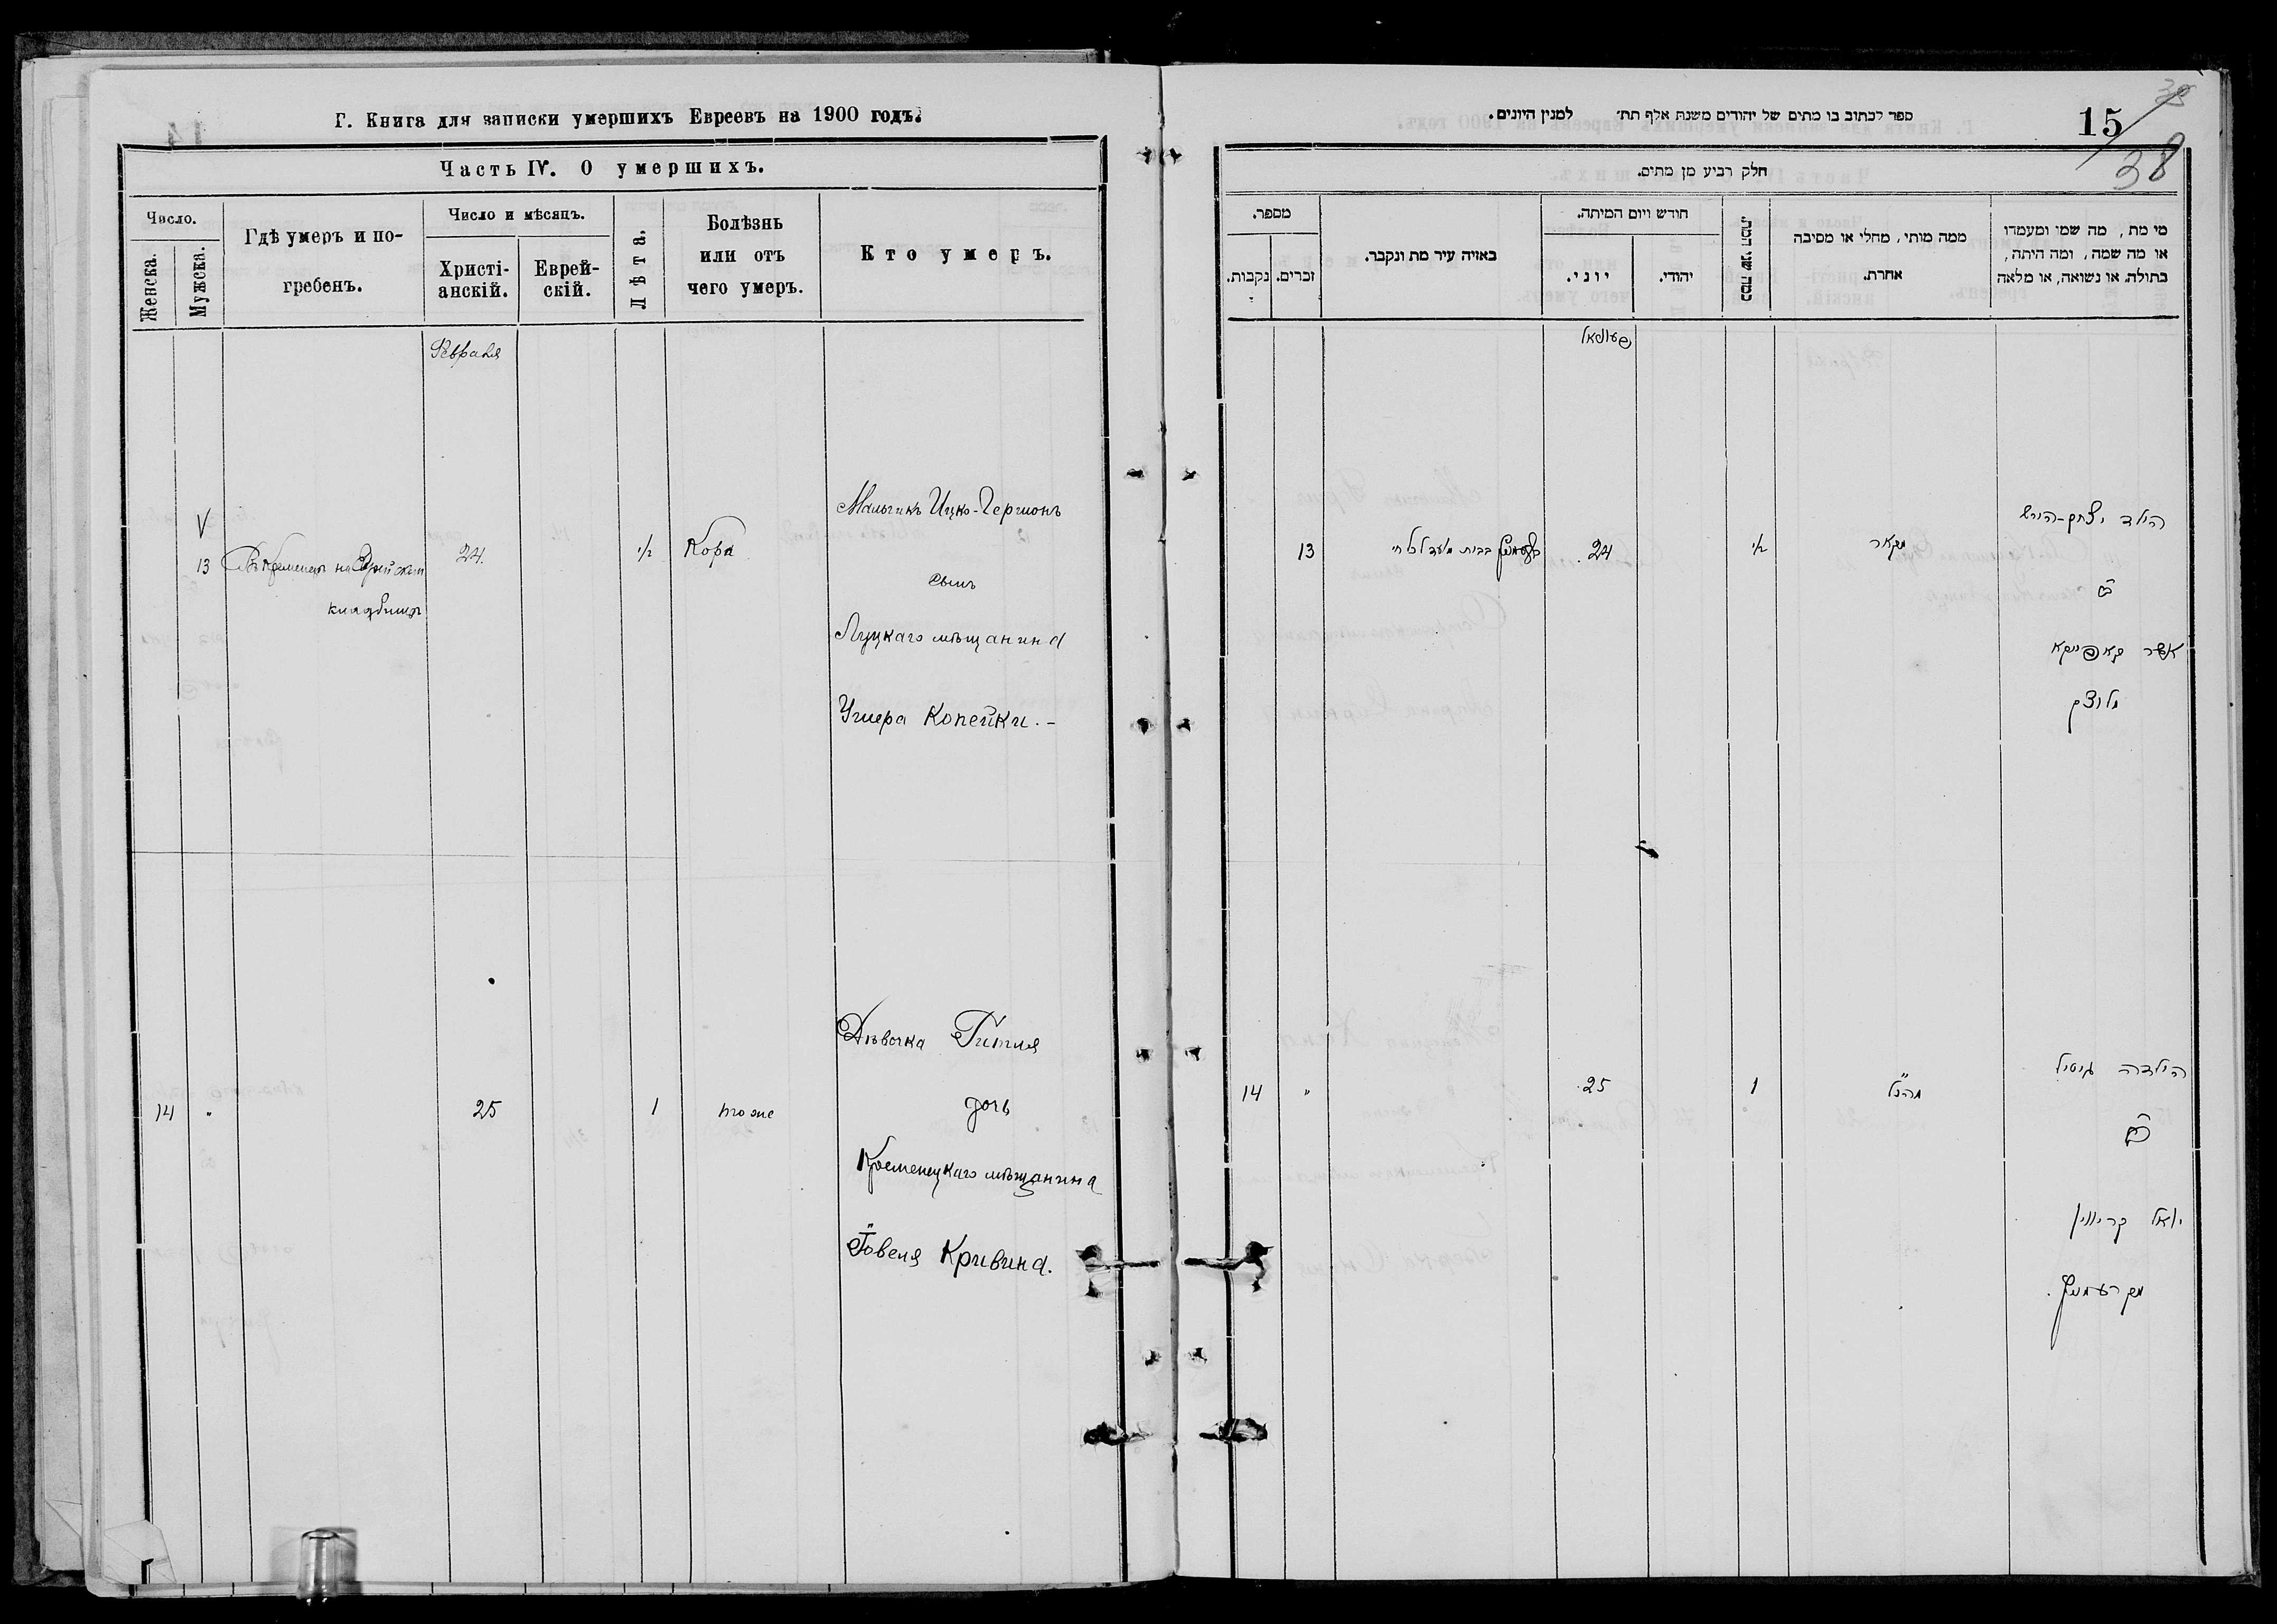 Г. Книга для записки умершихъ Евреевъ на 1900 годъ.
Часть IV. О умершихъ.
Число.
Женска.
Мужска.
Гдѣ умеръ и по-
гребенъ.
Число и мѣсяцъ.
Христі-
анскій.
Еврей-
скій.
Лѣта.
Болѣзнь
или отъ
чего умеръ.
Кто умеръ.
Февраля
V
13
Въ Кременцѣ на Еврейском
кладбищѣ
24.
1/2
Кора
Мальчикъ Ицко-Гершонъ
сынъ
Луцкаго мѣщанина
Ушера Копейки.-
14
"
25
1
тоже
Дѣвочка Гитля
дочь
Кременецкаго мѣщанина
Кривина.
ספר לכתוב בו מתים של יהודים משנת אלף תת׳ למנין היונים.
15
38
חלק רביע מן מתים.
מספר.
נקבות.
זכרים.
באזיה עיר מת ונקבר.
חודש ויום המיתה.
יוני.
יהודי.
כמה שני המת.
ממה מותו, מחלי או מסיבה
אחרת.
מי מת, מה שמו ומעמדו
או מה שמה, ומה היתה,
בתולה או נשואה, או מלאה
13
24
1/2
מקאר
הילד יצחק-הירש
ב
אשר קאפייקא
מלוצק
14
"
25
1
הילדה גיטיל
ב
יואל קריווין
מקרעמניץ.